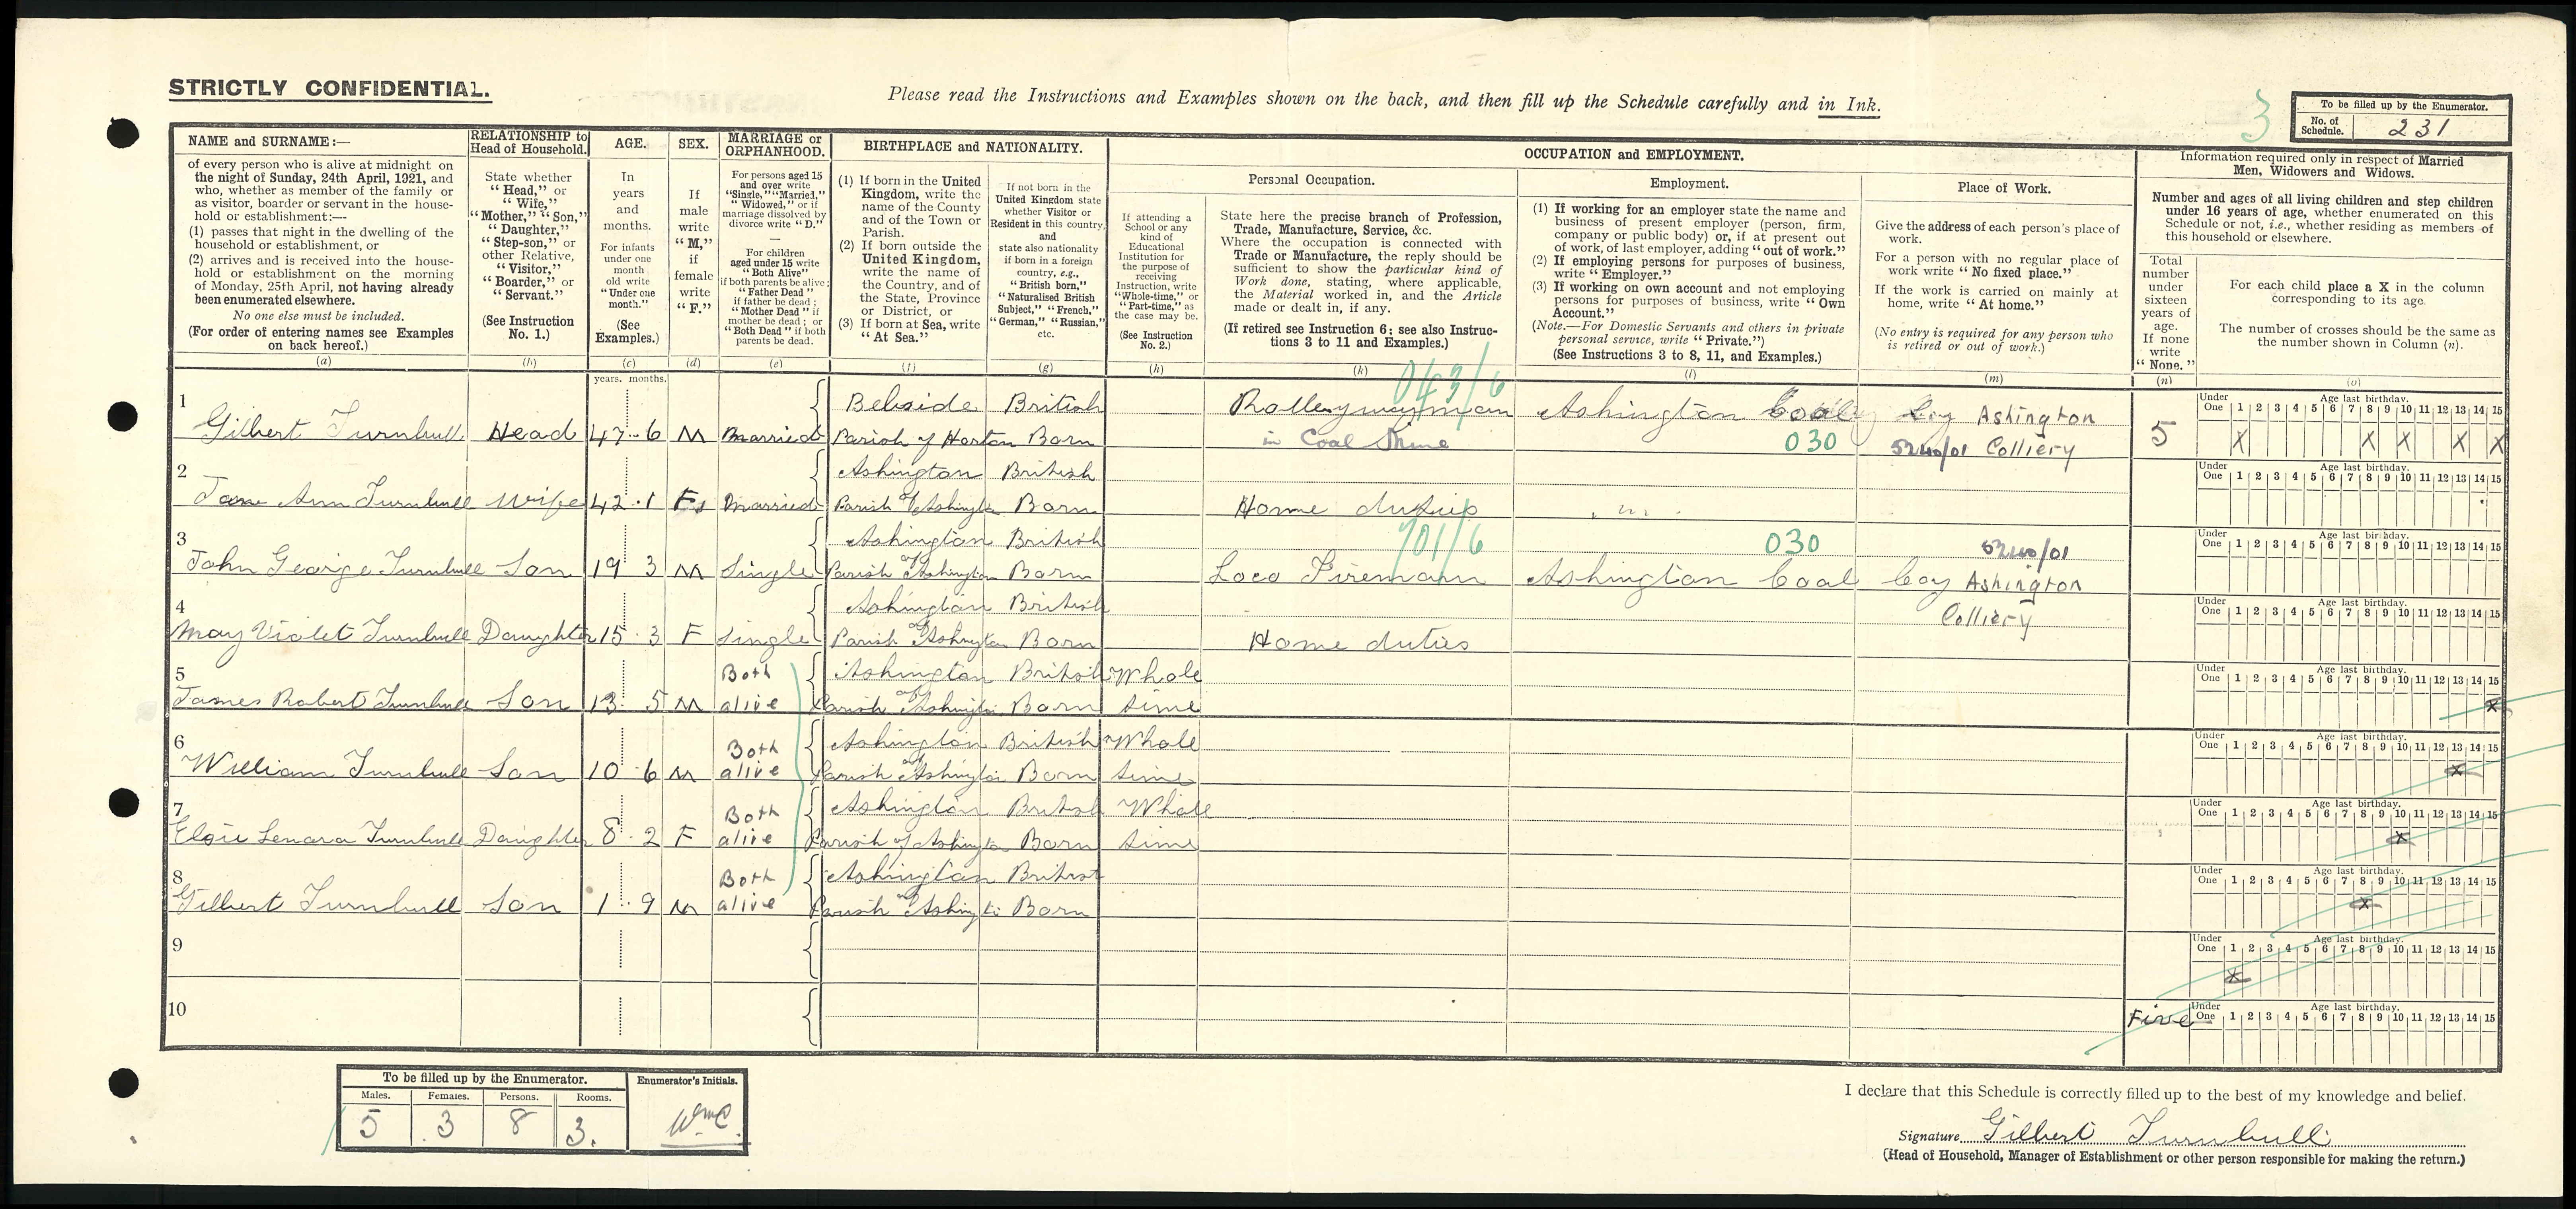 STRICTLY CONFIDENTIAL.
Please read the Instructions and Examples shown on the back, and then fill up the Schedule carefully and in Ink.
3
To be filled up by the Enumerator.
No. of Schedule. 231
NAME and SURNAME:—
of every person who is alive at midnight on
the night of Sunday, 24th April, 1921, and
who, whether as member of the family or
as visitor, boarder or servant in the house-
hold or establishment:—
(1) passes that night in the dwelling of the
household or establishment, or
(2) arrives and is received into the house-
hold or establishment on the morning
of Monday, 25th April, not having already
been enumerated elsewhere.
No one else must be included.
(For order of entering names see Examples
on back hereof.)
(a)
RELATIONSHIP to
Head of Household.
State whether
"Head," or
"Wife,"
"Mother," "Son,"
"Daughter,"
"Step-son," or
other Relative,
"Visitor,"
"Boarder," or
"Servant."
(See Instruction
No. 1.)
(b)
AGE.
In
years
and
months.
For infants
under one
month
old write
"Under one
month."
(See
Examples.)
(c)
years. months.
SEX.
If
male
write
"M,"
if
female
write
"F."
(d)
MARRIAGE or
ORPHANHOOD.
For persons aged 15
and over write
"Single," "Married,"
"Widowed," or if
marriage dissolved by
divorce write "D."
—
For children
aged under 15 write
"Both Alive"
if both parents be alive;
"Father Dead"
if father be dead;
"Mother Dead" if
mother be dead; or
"Both Dead" if both
parents be dead.
(e)
BIRTHPLACE and NATIONALITY.
(1) If born in the United
Kingdom, write the
name of the County
and of the Town or
Parish.
(2) If born outside the
United Kingdom,
write the name of
the Country, and of
the State, Province
or District, or
(3) If born at Sea, write
"At Sea."
(f)
If not born in the
United Kingdom state
whether Visitor or
Resident in this country,
and
state also nationality
if born in a foreign
country, e.g.,
"British born,"
"Naturalised British
Subject," "French,"
"German," "Russian,"
etc.
(g)
OCCUPATION and EMPLOYMENT.
If attending a
School or any
kind of
Educational
Institution for
the purpose of
receiving
Instruction, write
"Whole-time," or
"Part-time," as
the case may be.
(See Instruction
No. 2.)
(h)
Personal Occupation.
State here the precise branch of Profession,
Trade, Manufacture, Service, &c.
Where the occupation is connected with
Trade or Manufacture, the reply should be
sufficient to show the particular kind of
Work done, stating, where applicable,
the Material worked in, and the Article
made or dealt in, if any.
(If retired see Instruction 6; see also Instruc-
tions 3 to 11 and Examples.)
(k)
Employment.
(1) If working for an employer state the name and
business of present employer (person, firm,
company or public body) or, if at present out
of work, of last employer, adding "out of work."
(2) If employing persons for purposes of business,
write "Employer."
(3) If working on own account and not employing
persons for purposes of business, write "Own
Account."
(Note.—For Domestic Servants and others in private
personal service, write "Private.")
(See Instructions 3 to 8, 11, and Examples.)
(l)
Place of Work.
Give the address of each person's place of
work.
For a person with no regular place of
work write "No fixed place."
If the work is carried on mainly at
home, write "At home."
(No entry is required for any person who
is retired or out of work.)
(m)
Information required only in respect of Married
Men, Widowers and Widows.
Number and ages of all living children and step children
under 16 years of age, whether enumerated on this
Schedule or not, i.e., whether residing as members of
this household or elsewhere.
Total
number
under
sixteen
years of
age.
If none
write
"None."
(n)
For each child place a X in the column
corresponding to its age.
The number of crosses should be the same as
the number shown in Column (n).
(o)
1 Belside British 043/6
Gilbert Turnbull Head 47 6 M Married Parish of Horton Born
Rolleywayman Ashington Coal Coy Ashington
in Coal Mine 030 5240/01 Colliery 5
Under One Age last birthday. 1 2 3 4 5 6 7 8 9 10 11 12 13 14 15
X X X X X
2 Ashington British
Jane Ann Turnbull Wife 42 1 F Married Parish of Ashington Born Home duties
Under One Age last birthday. 1 2 3 4 5 6 7 8 9 10 11 12 13 14 15
3 Ashington British 701/6 030 5240/01
John George Turnbull Son 19 3 M Single Parish of Ashington Born Loco Fireman Ashington Coal Coy Ashington
Under One Age last birthday. 1 2 3 4 5 6 7 8 9 10 11 12 13 14 15
4 Ashington British Colliery
May Violet Turnbull Daughter 15 3 F Single Parish of Ashington Born Home duties
Under One Age last birthday. 1 2 3 4 5 6 7 8 9 10 11 12 13 14 15
5 Both Ashington British Whole
James Robert Turnbull Son 13 5 M alive Parish of Ashington Born time
Under One Age last birthday. 1 2 3 4 5 6 7 8 9 10 11 12 13 14 15
X
6 Both Ashington British Whole
William Turnbull Son 10 6 M alive Parish of Ashington Born time
Under One Age last birthday. 1 2 3 4 5 6 7 8 9 10 11 12 13 14 15
X
7 Both Ashington British Whole
Elsie Lenora Turnbull Daughter 8 2 F alive Parish of Ashington Born time
Under One Age last birthday. 1 2 3 4 5 6 7 8 9 10 11 12 13 14 15
X
8 Both Ashington British
Gilbert Turnbull Son 1 9 M alive Parish of Ashington Born
Under One Age last birthday. 1 2 3 4 5 6 7 8 9 10 11 12 13 14 15
X
9
Under One Age last birthday. 1 2 3 4 5 6 7 8 9 10 11 12 13 14 15
X
10
Five
Under One Age last birthday. 1 2 3 4 5 6 7 8 9 10 11 12 13 14 15
To be filled up by the Enumerator.
Males. Females. Persons. Rooms.
5 3 8 3.
Enumerator's Initials.
WmC
I declare that this Schedule is correctly filled up to the best of my knowledge and belief.
Signature Gilbert Turnbull
(Head of Household, Manager of Establishment or other person responsible for making the return.)